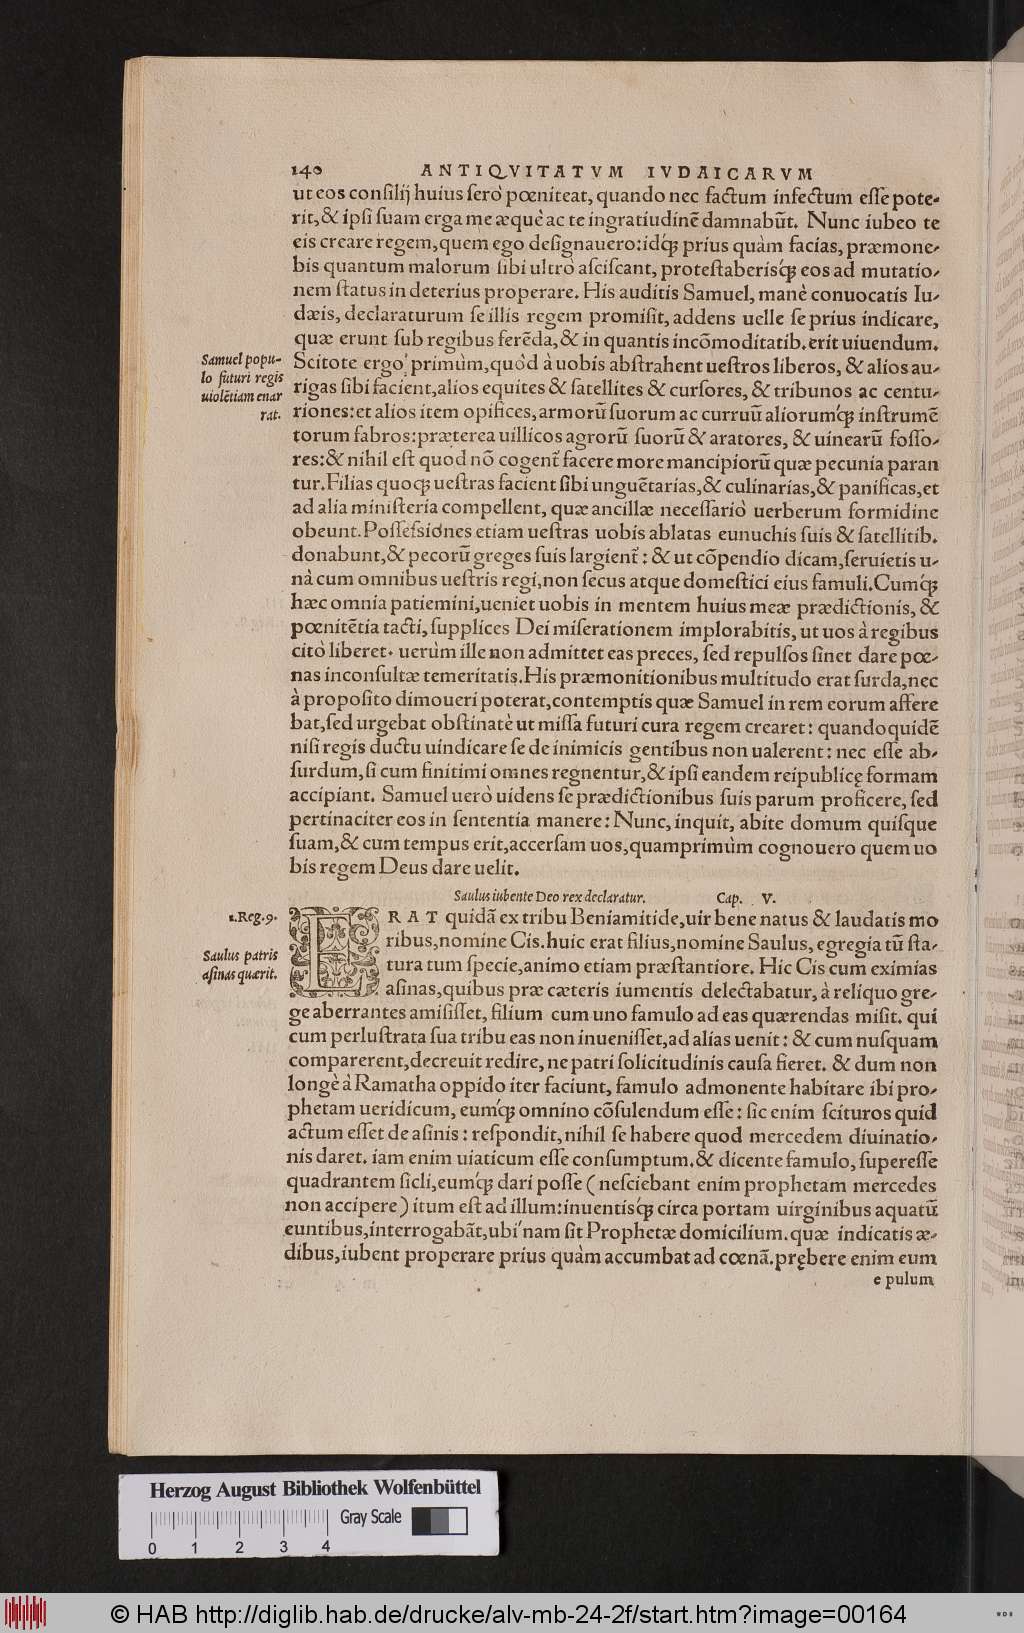 140 ANTIQVITATVM IVDAICARVM
ut eos consilij huius serò pœniteat, quando nec factum infectum esse pote-
rit, & ipsi suam erga me æquè ac te ingratiudinẽ damnabũt. Nunc iubeo te
eis creare regem, quem ego designauero: idq́; prius quàm facias, præmone-
bis quantum malorum sibi ultrò asciscant, protestaberisq́; eos ad mutatio-
nem status in deterius properare. His auditis Samuel, manè conuocatis Iu-
dæis, declaraturum se illis regem promisit, addens uelle se prius indicare,
quæ erunt sub regibus ferẽda, & in quantis incõmoditatib. erit uiuendum.
Samuel popu-
lo futuri regis
uiolẽtiam enar
rat.
Scitote ergo' primùm, quòd à uobis abstrahent uestros liberos, & alios au-
rigas sibi facient, alios equites & satellites & cursores, & tribunos ac centu-
riones: et alios item opifices, armorũ suorum ac curruũ aliorumq́; instrumẽ
torum fabros: præterea uillicos agrorũ suorũ & aratores, & uinearũ fosso-
res: & nihil est quod nõ cogent̃ facere more mancipiorũ quæ pecunia paran
tur. Filias quoq; uestras facient sibi unguẽtarias, & culinarias, & panificas, et
ad alia ministeria compellent, quæ ancillæ necessariò uerberum formidine
obeunt. Possessiones etiam uestras uobis ablatas eunuchis suis & satellitib.
donabunt, & pecorũ greges suis largient̃: & ut cõpendio dicam, seruietis u-
nà cum omnibus uestris regi, non secus atque domestici eius famuli. Cumq́;
hæc omnia patiemini, ueniet uobis in mentem huius meæ prædictionis, &
pœnitẽtia tacti, supplices Dei miserationem implorabitis, ut uos à regibus
citò liberet. uerùm ille non admittet eas preces, sed repulsos sinet dare pœ-
nas inconsultæ temeritatis. His præmonitionibus multitudo erat surda, nec
à proposito dimoueri poterat, contemptis quæ Samuel in rem eorum affere
bat, sed urgebat obstinatè ut missa futuri cura regem crearet: quandoquidẽ
nisi regis ductu uindicare se de inimicis gentibus non ualerent: nec esse ab-
surdum, si cum finitimi omnes regnentur, & ipsi eandem reipublicę formam
accipiant. Samuel uerò uidens se prædictionibus suis parum proficere, sed
pertinaciter eos in sententia manere: Nunc, inquit, abite domum quisque
suam, & cum tempus erit, accersam uos, quamprimùm cognouero quem uo
bis regem Deus dare uelit.
Saulus iubente Deo rex declaratur. Cap. V.
1. Reg. 9.
Saulus patris
asinas quærit.
ERAT quidã ex tribu Beniamitide, uir bene natus & laudatis mo
ribus, nomine Cis. huic erat filius, nomine Saulus, egregia tũ sta-
tura tum specie, animo etiam præstantiore. Hic Cis cum eximias
asinas, quibus præ cæteris iumentis delectabatur, à reliquo gre-
ge aberrantes amisisset, filium cum uno famulo ad eas quærendas misit. qui
cum perlustrata sua tribu eas non inuenisset, ad alias uenit: & cum nusquam
comparerent, decreuit redire, ne patri solicitudinis causa fieret. & dum non
longè à Ramatha oppido iter faciunt, famulo admonente habitare ibi pro-
phetam ueridicum, eumq́; omnino cõsulendum esse: sic enim scituros quid
actum esset de asinis: respondit, nihil se habere quod mercedem diuinatio-
nis daret. iam enim uiaticum esse consumptum. & dicente famulo, superesse
quadrantem sicli, eumq́; dari posse (nesciebant enim prophetam mercedes
non accipere) itum est ad illum: inuentisq́; circa portam uirginibus aquatũ
euntibus, interrogabãt, ubi'nam sit Prophetæ domicilium. quæ indicatis æ-
dibus, iubent properare prius quàm accumbat ad cœnã. prębere enim eum
e pulum
Herzog August Bibliothek Wolfenbüttel
Gray Scale
0 1 2 3 4
© HAB http://diglib.hab.de/drucke/alv-mb-24-2f/start.htm?image=00164